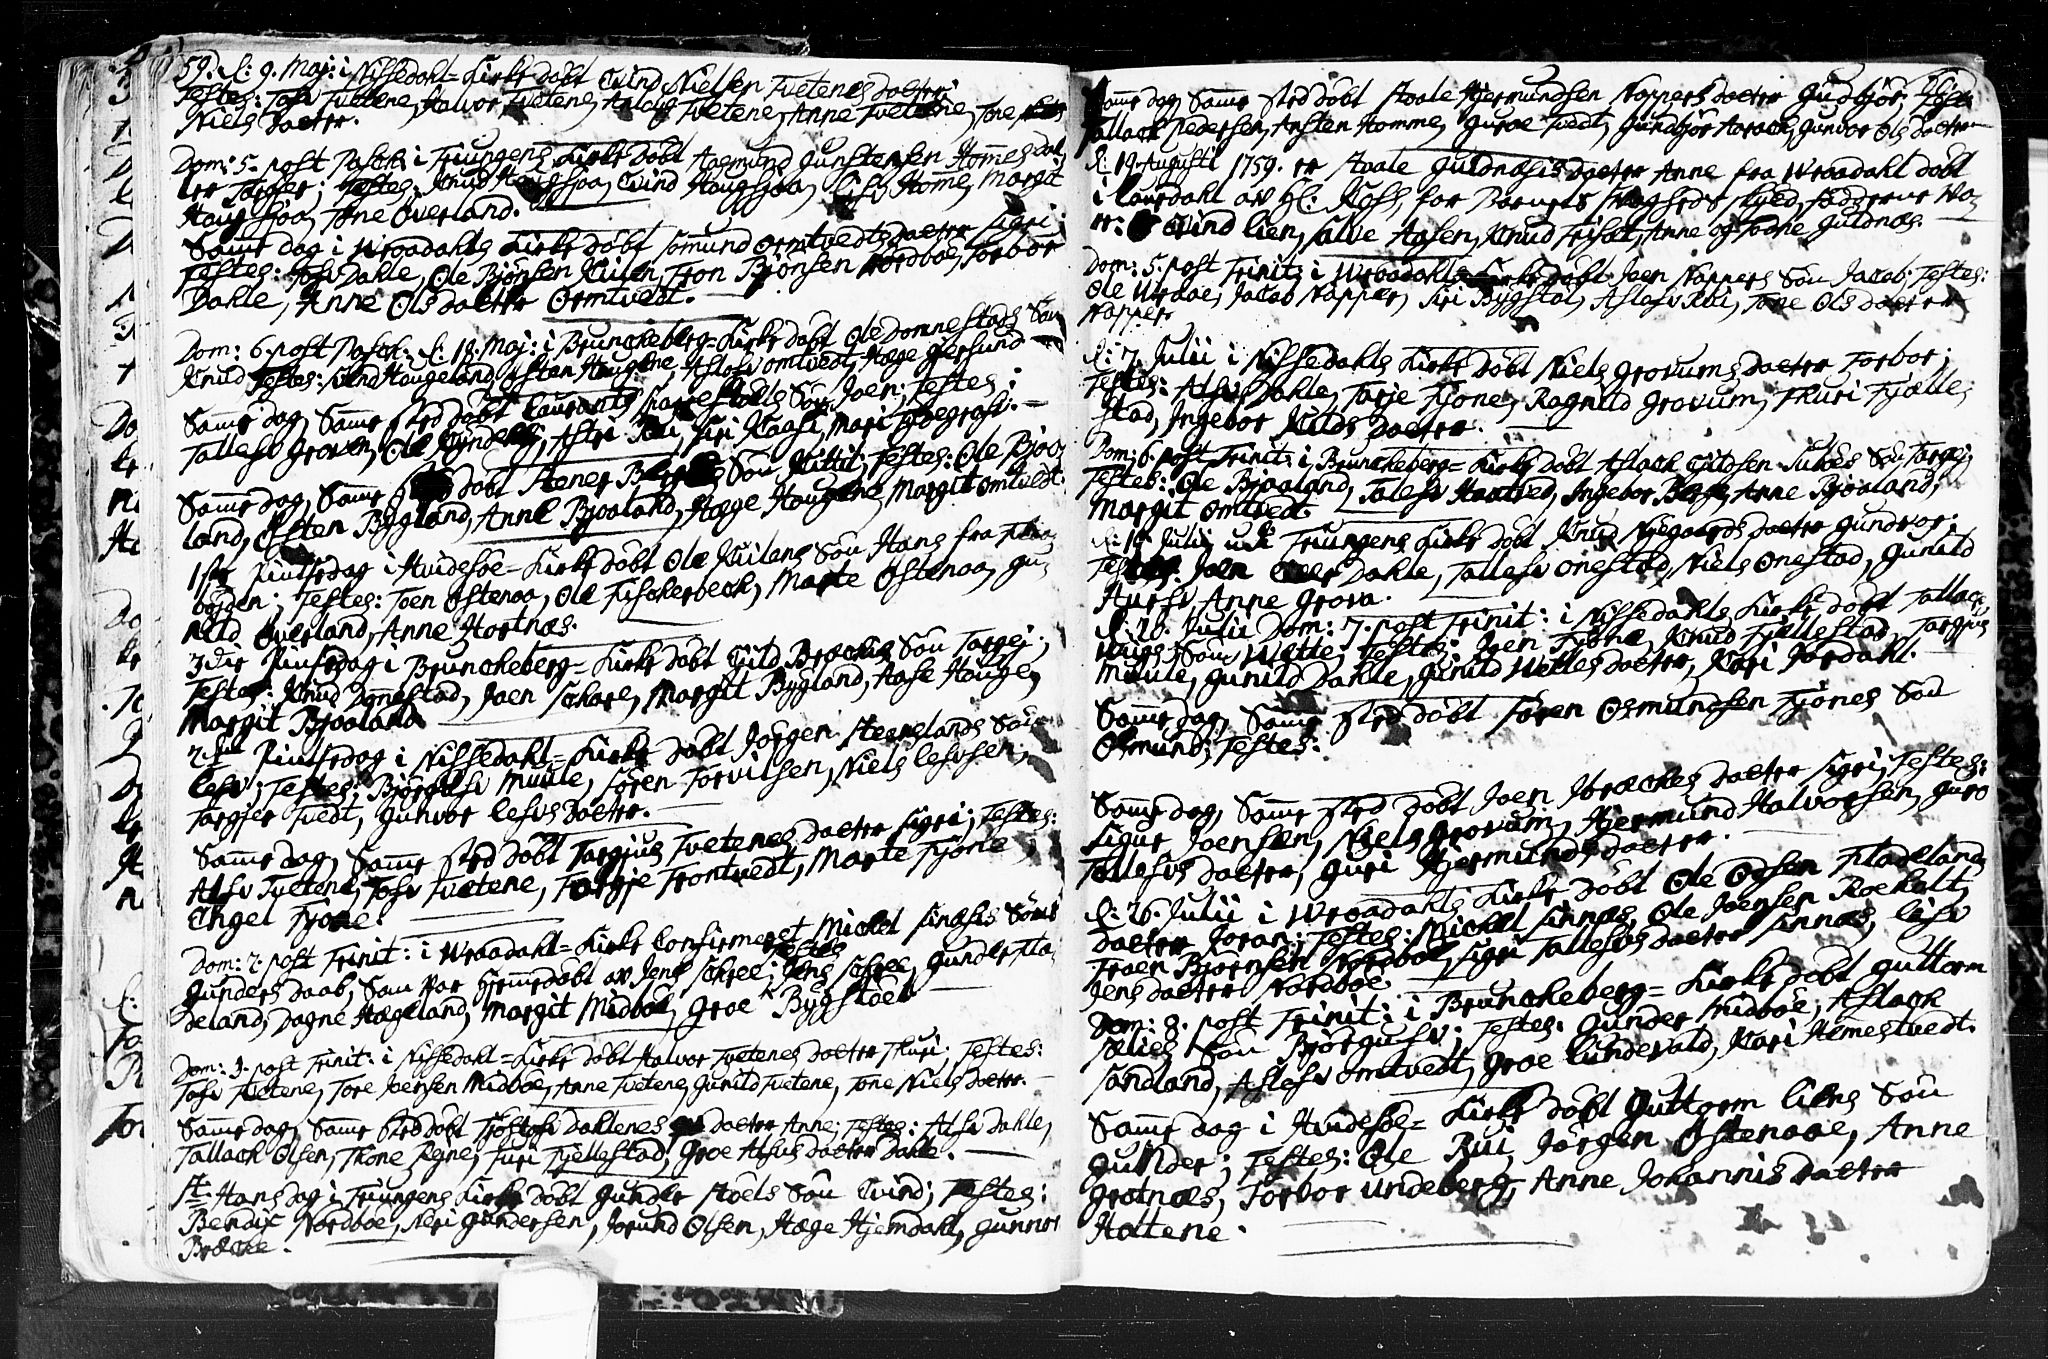 59. d: 9. Maj: i Nissedahl=Kirke döbt Evind Nielsen Tvetenes daatter
Testes: Tosv Tvetene, Halvor Tvetene, Aaloug Tvetene, Anne Tvetene, Tone
Niels Daatter.
Dom: 5. post Pasch: i Triungens Kirke döbt Aasmund Gunstensen Hommes dat-
ter Targier; Testes: Knud Haugsjaa, Evind Haugsjaa, Lisv Home, Margit
Haugsjaa, Tone Överland.
Same dag i Wraadahls Kirke döbt Somund Ormtvedts daatter Sigri
Testes: Tosv Dahle, Ole Björnsen Kiilen, Tron Björnsen Nordböe, Torbor
Dahle, Anne Ols daatter Ormtvedt.
Dom: 6. post Pasch: d: 18. Maj: i Brunckeberg=Kirke döbt Ole Domnestads Sön
Knud Testes: Svend Haugeland, Östen Haugene, Aslosv Omtvedt, Hæge Jersund
Same dag, Same sted döbt Laurants Sön Joen; Testes:
Tallesv Groven, Ole Astri Rui, Siri Kaasi, Mari
Same dag, Same sted döbt Stener Sön Kittil; Testes: Ole Bjoa-
land, Östen Bygland, Anne Bjoaland, Hæge Haugene, Margit Omtvedt.
1ste Pintsedag i Hvidesöe=Kirke döbt Ole Kiilens Sön Hans fra
böjden; Testes: Joen Östenaa, Ole Fischerbech, Marte Östenaa, Gu-
nild Överland, Anne Hortnæs.
3die Pintsedag i Brunckeberg=Kirke döbt Eyild Bræckes Sön Targej;
Testes: Knud Dönestad, Joen Schare, Margit Bygland, Aase Houge,
Margit Bjoaland
2den Pintsedag i Nissedahl=Kirke döbt Jörgen Steenelands Sön
Lesv; Testes: Björgulsv Muule, Sören Torvilsen, Niels Lesvsen,
Targier Tvedt, Gunvor Lesvs daatter.
Same dag, Same sted döbt Targjus Tvetenes daatter Sigri; Testes:
Alsv Tvetene, Tosv Tvetene, Targje Trontvedt, Marte Fjone
Engel Fjone.
Dom: 2. post Trinit: i Wraadahl=Kirke Confirmeret Michel Sinæses Söns
Gunders daab, som var hjemmedöbt av Jens Schree; Testes Jens Schree, Gunder Fla-
deland, Dagne Hægeland, Margit Midböe, Groe Bygstöel
Dom: 3. post Trinit: i Nissedahl=Kirke döbt Halvor Tvetenes daatter Thuri; Testes:
Tosv Tvetene, Tore Joensen Midböe, Anne Tvetene, Gunild Tvetene, Tone Niels daatter.
Same dag, Same sted döbt Tjöstolsv Dahlenes daatter Anne; Testes: Alsv Dahle,
Tallach Olsen, Thone Rejne, Turi Fjellestad, Groe Alsvs daatter Dahle.
St Hans dag i Triungens Kirke döbt Gunder Stöels Sön Evind; Testes:
Bendix Nordböe, Neri Gundersen, Jorund Olsen, Hæge Hjemdahl, Gunnor
Bræcke.
Same dag, Same sted döbt Staale Gjermundsen Nappers daatter Gudbjör; Testes
Tallach Pedersen, Ansten Homme, Guroe Tvedt, Gundbjör Aarach, Gunvor Ols daatter
d: 19 Augusti 1759. er Staale Guldnæsis daatter Anne fra Wraadahl döbt
i Laurdahl av Hl: Koss, for Barnets Svagheds skyld, Fadderne va-
re: Evind Lien, Salve Aasen, Knud Trisæt, Anne og Dagne Guldnæs.
Dom: 5. post Trinit: i Wraadahls Kirke döbt Joen Nappers Sön Jacob. Testes:
Ole Wraae, Jacob Napper, Siri Bygstöl, Aslosv Rui, Tone Ols daatter
Napper
d: 7. Julii i Nissedahls Kirke döbt Niels Grovums daatter Torbor;
Testes: Alsv Dahle, Tarje Fjone, Ragnild Grovum, Thuri Fjælle-
stad, Ingebor Kilds daatter.
Dom: 6. post Trinit: i Brunckeberg=Kirke döbt Aslach Eyildsen Sukaas Sön Targej,
Testes: Ole Bjoaland, Talesv Haatved, Ingebor Anne Bjoaland,
Margit Omtvedt.
Julii udi Triungens Kirke döbt Knud Nygaards daatter Gundvor;
Testes: Joen Dahle, Tallesv Önestad, Niels Onestad, Gunild
Aursv, Anne Grova.
d: 20. Julii Dom: 7. post Trinit: i Nissedahls Kirke döbt Tallach
Sön Wetle; Testes: Joen Fjone, Knud Fjellestad, Targjus
Muule, Gunild Dahle, Gunild Wetles daatter, Kari Jordahl.
Same dag, Same sted döbt Sören Osmundsen Fjones Sön
Osmund; Testes:
Same dag, Same sted döbt Joen Ibræckes daatter Sigri; Testes:
Sigur Joensen, Niels Grovum, Gjermund Halvorsen, Guro
Tallesvs daatter, Guri Gjermunds daatter.
d: 26. Julii i Wraadahls Kirke döbt Ole Odsen Fladelands
daatter Joran; Testes: Michel Sinnæs, Ole Joensen Roeholt,
Troen Björnsen Nordböe, Sigri Tallesvs daatter Sinnæs, Lisv
Jens daatter Nordböe
Dom: 8. post Trinit: i Brunckeberg=Kirke döbt Guttorm
Sælies Sön Björgusv; Testes: Gunder Midböe, Aslach
Sandland, Aslesv Omtvedt, Groe Lundevald, Kari Hemestvedt.
Same dag i Hvidesöe=Kirke döbt Guttorm Liens Sön
Gunder; Testes: Ole Rui, Jörgen Östenaae, Anne
Grotnæs, Torbor Undeberg, Anne Johannis daatter
Haltene.